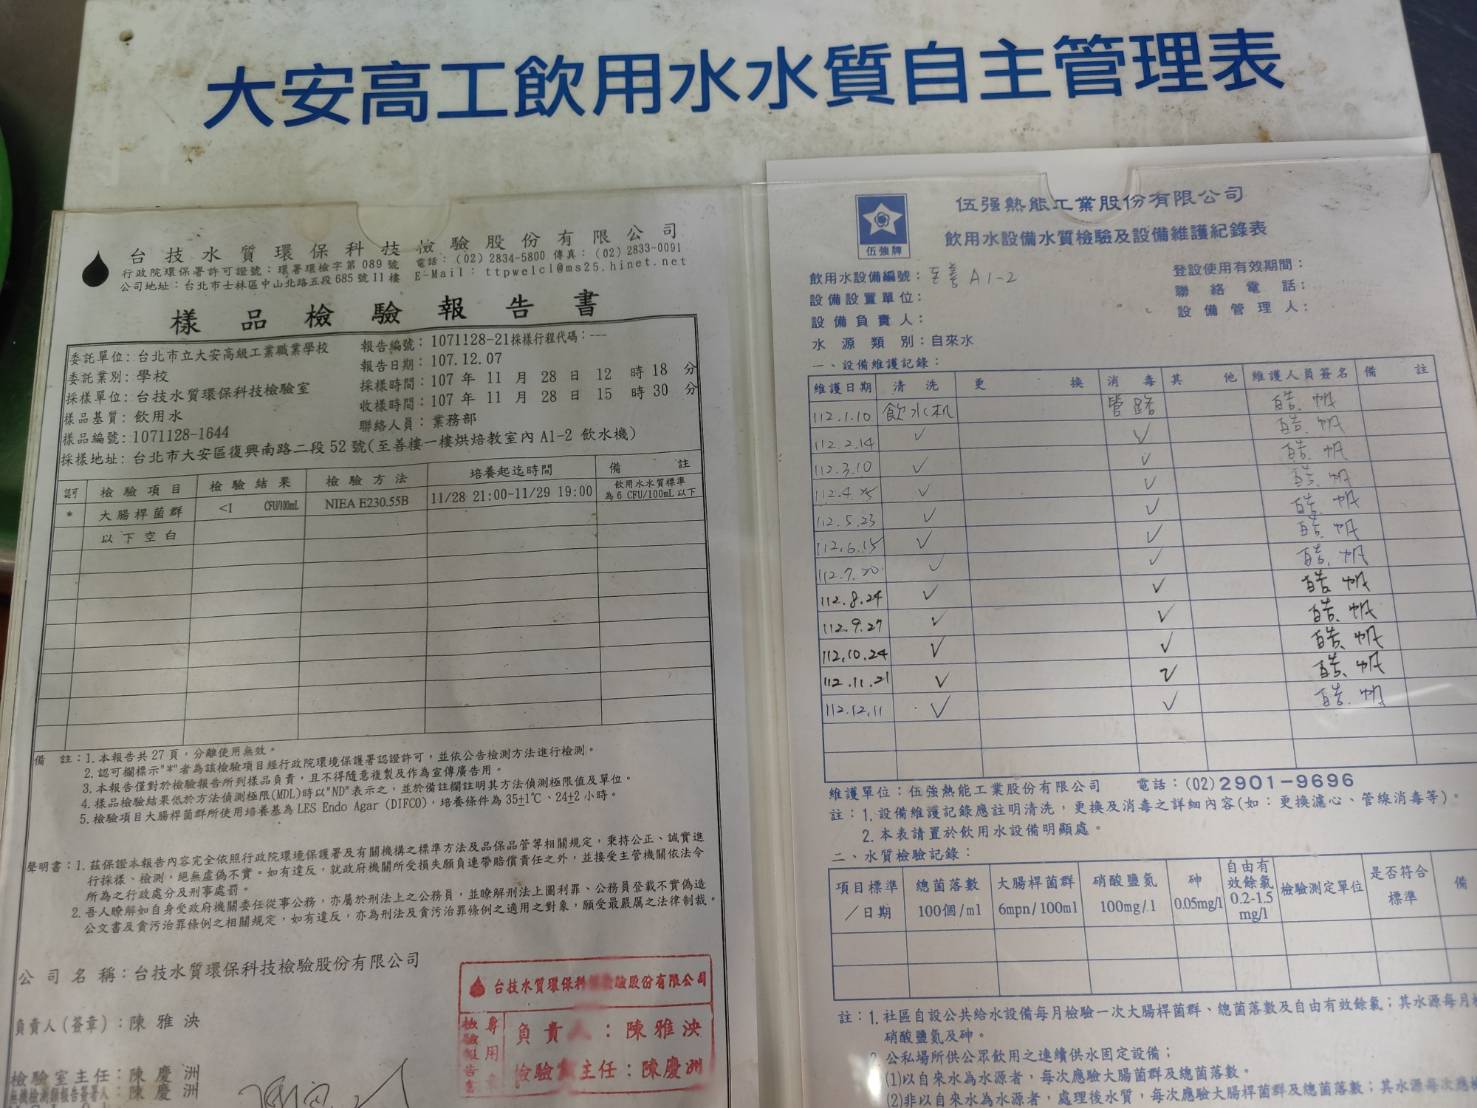 大安高工飲用水水質自主管理表
台技水質環保科技檢驗股份有限公司
行政院環保署許可證號：環署環檢字第 089 號 電話：(02) 2834-5800 傳真：(02) 2833-0091
公司地址：台北市士林區中山北路五段 685 號 11 樓 E-Mail： ttpwelcl@ms25.hinet.net
樣品檢驗報告書
委託單位：台北市立大安高級工業職業學校 報告編號：1071128-21採樣行程代碼：---
委託業別：學校 報告日期：107.12.07
採樣單位：台技水質環保科技檢驗室 採樣時間：107 年 11 月 28 日 12 時 18 分
樣品基質：飲用水 收樣時間：107 年 11 月 28 日 15 時 30 分
樣品編號：1071128-1644 聯絡人員：業務部
採樣地址：台北市大安區復興南路二段 52 號(至善樓一樓烘焙教室內 A1-2 飲水機)
認可 檢驗項目 檢驗結果 檢驗方法 培養起迄時間 備註
* 大腸桿菌群 <1 CFU/100mL NIEA E230.55B 11/28 21:00-11/29 19:00 飲用水水質標準
為 6 CFU/100mL 以下
以下空白
備註：1.本報告共 27 頁，分離使用無效。
2.認可欄標示"*"者為該檢驗項目經行政院環境保護署認證許可，並依公告檢測方法進行檢測。
3.本報告僅對於檢驗報告所列樣品負責，且不得隨意複製及作為宣傳廣告用。
4.樣品檢驗結果低於方法偵測極限(MDL)時以"ND"表示之，並於備註欄註明其方法偵測極限值及單位。
5.檢驗項目大腸桿菌群所使用培養基為 LES Endo Agar (DIFCO)，培養條件為 35±1℃、24±2 小時。
聲明書：1.茲保證本報告內容完全依照行政院環境保護署及有關機構之標準方法及品保品管等相關規定，秉持公正、誠實進
行採樣、檢測。絕無虛偽不實。如有違反，就政府機關所受損失願負連帶賠償責任之外，並接受主管機關依法令
所為之行政處分及刑事處罰。
2.吾人瞭解如自身受政府機關委任從事公務，亦屬於刑法上之公務員，並瞭解刑法上圖利罪、公務員登載不實偽造
公文書及貪污治罪條例之相關規定，如有違反，亦為刑法及貪污治罪條例之適用之對象，願受最嚴厲之法律制裁。
公司名稱：台技水質環保科技檢驗股份有限公司
負責人(簽章)：陳雅泱
檢驗室主任：陳慶洲
無機檢測類報告簽署人：陳慶洲
台技水質環保科技檢驗股份有限公司
檢驗報告書
專用章
負責人：陳雅泱
檢驗室主任：陳慶洲
伍強牌
伍强熱能工業股份有限公司
飲用水設備水質檢驗及設備維護紀錄表
飲用水設備編號：至善 A1-2 登設使用有效期間：
設備設置單位： 聯絡電話：
設備負責人： 設備管理人：
水源類別：自來水
一、設備維護記錄：
維護日期 清洗 更換 消毒 其他 維護人員簽名 備註
112.1.10 飲水机 管路 皓帆
112.2.14 ✓ ✓ 皓帆
112.3.10 ✓ ✓ 皓帆
112.4.25 ✓ ✓ 皓帆
112.5.23 ✓ ✓ 皓帆
112.6.15 ✓ ✓ 皓帆
112.7.20 ✓ ✓ 皓帆
112.8.24 ✓ ✓ 皓帆
112.9.27 ✓ ✓ 皓帆
112.10.24 ✓ ✓ 皓帆
112.11.21 ✓ ✓ 皓帆
112.12.11 ✓ ✓ 皓帆
維護單位：伍強熱能工業股份有限公司 電話：(02)2901-9696
註：1.設備維護記錄應註明清洗，更換及消毒之詳細內容(如：更換濾心、管線消毒等)。
2.本表請置於飲用水設備明顯處。
二、水質檢驗記錄：
項目標準／日期 總菌落數 100個/ml 大腸桿菌群 6mpn/100ml 硝酸鹽氮 100mg/l 砷 0.05mg/l 自由有效餘氯 0.2-1.5 mg/l 檢驗測定單位 是否符合標準 備
註：1.社區自設公共給水設備每月檢驗一次大腸桿菌群、總菌落數及自由有效餘氯；其水源每月
硝酸鹽氮及砷。
2.公私場所供公眾飲用之連續供水固定設備；
(1)以自來水為水源者，每次應驗大腸菌群及總菌落數。
(2)非以自來水為水源者，處理後水質，每次應驗大腸桿菌群及總菌落數；其水源每次應